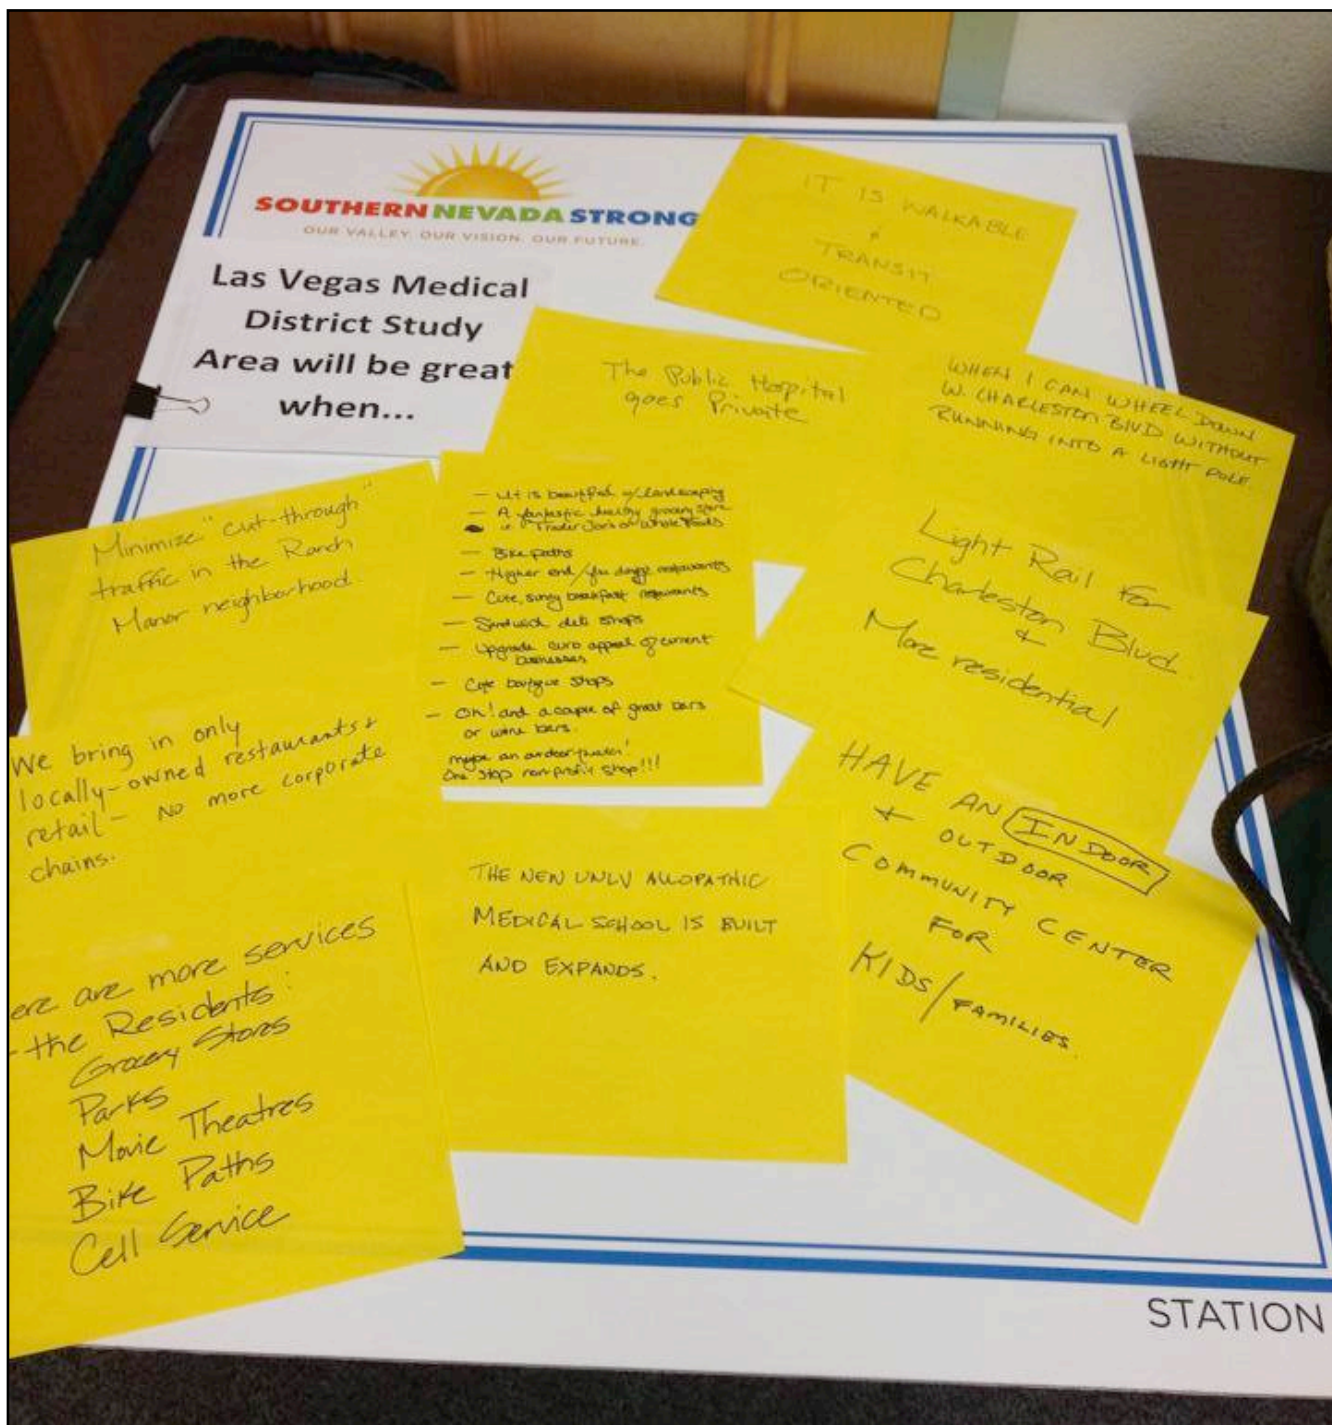 SOUTHERN NEVADA STRONG
OUR VALLEY. OUR VISION. OUR FUTURE.
Las Vegas Medical
District Study
Area will be great
when...
IT IS WALKABLE
+
TRANSIT
ORIENTED
The Public Hospital
goes Private
WHEN I CAN WHEEL DOWN
W. CHARLESTON BLVD WITHOUT
RUNNING INTO A LIGHT POLE.
Minimize "cut-through"
traffic in the Ranch
Manor neighborhood.
- It is beautiful w/landscaping
- A fantastic healthy grocery store
ie Trader Joe's or Whole Foods
- Bike paths
- Higher end / restaurants
- Cute, sunny breakfast restaurants
- Sandwich deli shops
- Upgrade curb appeal of current
businesses
- Cute boutique shops
- Oh! and a couple of great bars
or wine bars.
maybe an outdoor
One stop non-profit shop!!!
Light Rail for
Charleston Blvd.
&
More residential
We bring in only
locally-owned restaurants +
retail - No more corporate
chains.
HAVE AN INDOOR
+ OUTDOOR
COMMUNITY CENTER
FOR
KIDS/FAMILIES.
THE NEW UNLV ALLOPATHIC
MEDICAL SCHOOL IS BUILT
AND EXPANDS.
ere are more services
the Residents:
Grocery Stores
Parks
Movie Theatres
Bike Paths
Cell Service
STATION